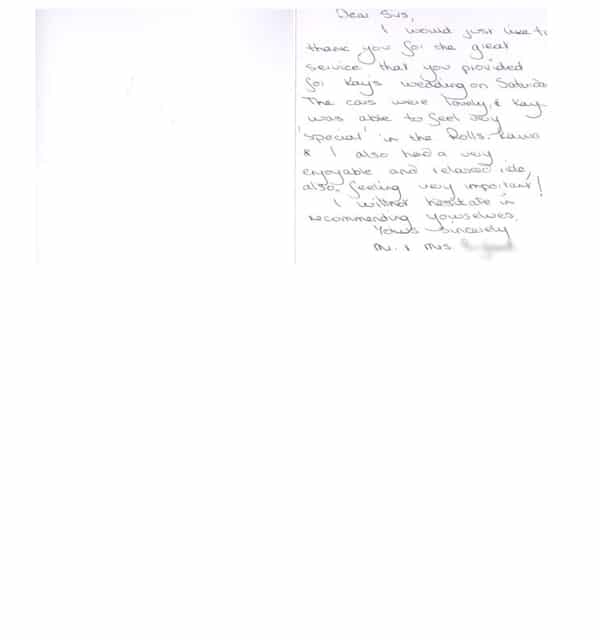 Dear Sirs,
I would just like to
thank you for the great
service that you provided
for Kay's wedding on Saturda
The cars were lovely, & Kay
was able to feel very
'special' in the Rolls.
& I also had a very
enjoyable and relaxed ride,
also, feeling very important!
I will not hesitate in
recommending yourselves.
Yours sincerely
Mr. & Mrs.